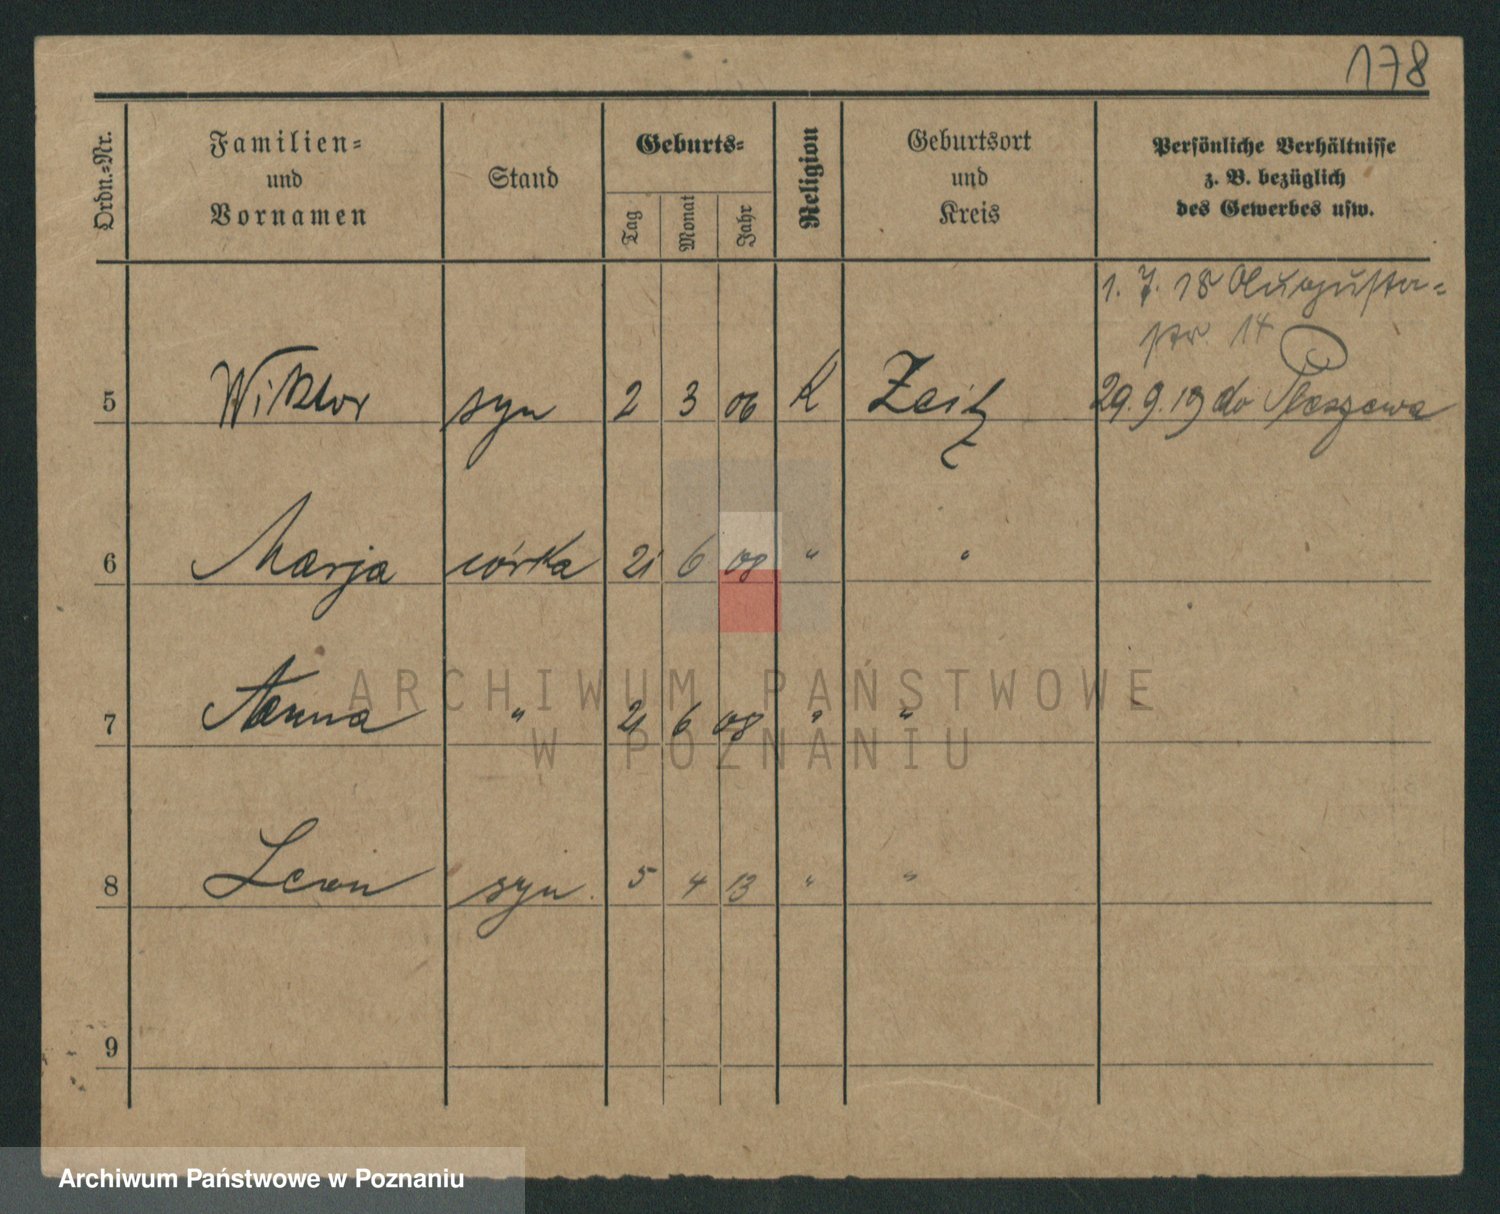 178
Ordn.=Nr.
Familien=
und
Vornamen
Stand
Geburts=
Tag
Monat
Jahr
Religion
Geburtsort
und
Kreis
Persönliche Verhältnisse
z. B. bezüglich
des Gewerbes usw.
1. 7. 18 Augusta=
str. 14
5 Wiktor syn 2 3 06 K Zeitz 29. 9. 19 do Pleszewa
6 Marja córka 21 6 08 " "
7 Anna " 21 6 08 " "
8 Leon syn. 5 4 13 " "
9
ARCHIWUM PAŃSTWOWE
W POZNANIU
Archiwum Państwowe w Poznaniu